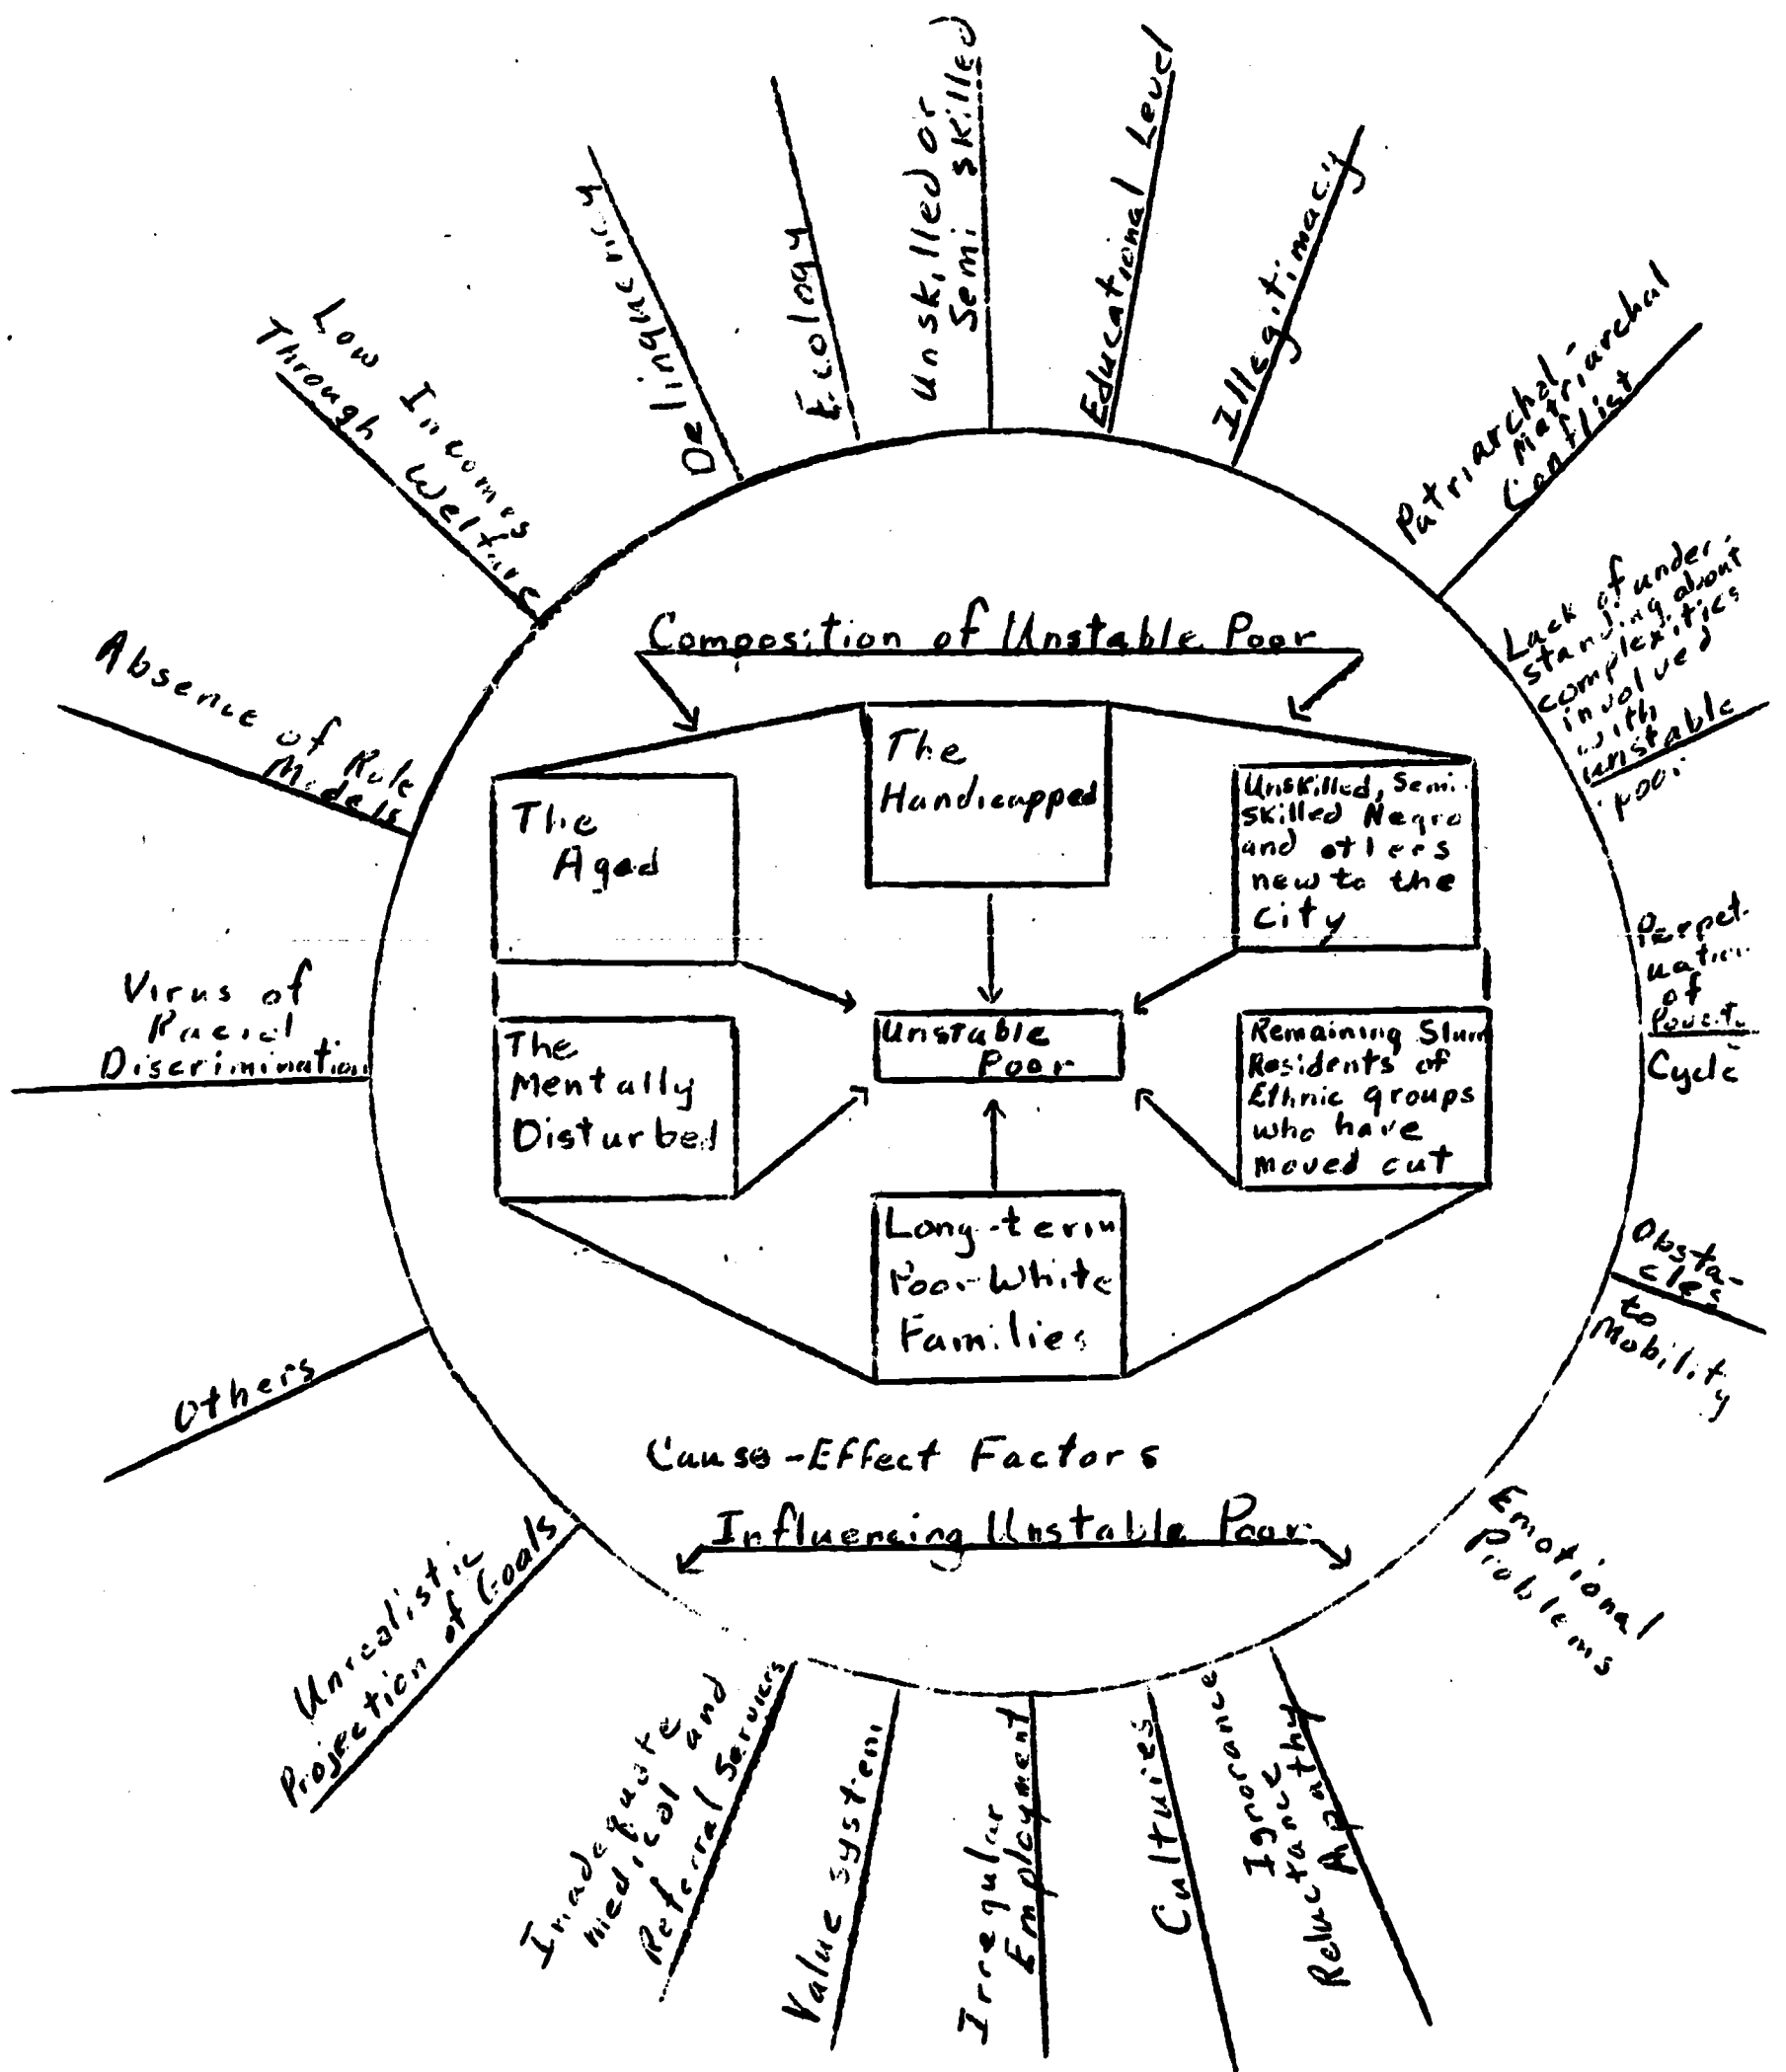 Unskilled or
Semi skilled
Educational Level
Illegitimacy
Patriarchal-
Matriarchal
Conflict
Lack of under-
standing about
complexities
involved
with
unstable
poor
Perpet-
uation
of
Poverty
Cycle
Obsta-
cles
to
Mobility
Emotional
Problems
Ignorance
Reluctance
Apathy
Cultures
Irregular
Employment
Value system
Inadequate
medical and
Referral Services
Unrealistic
Projection of Goals
Others
Virus of
Racial
Discrimination
Absence of Role
Models
Low Incomes
Through Welfare
Delinquency
Ecology
Composition of Unstable Poor
The
Aged
The
Handicapped
Unskilled, Semi-
skilled Negro
and others
new to the
city
The
Mentally
Disturbed
Unstable
Poor
Remaining Slum
Residents of
Ethnic groups
who have
moved out
Long-term
Poor White
Families
Cause-Effect Factors
Influencing Unstable Poor